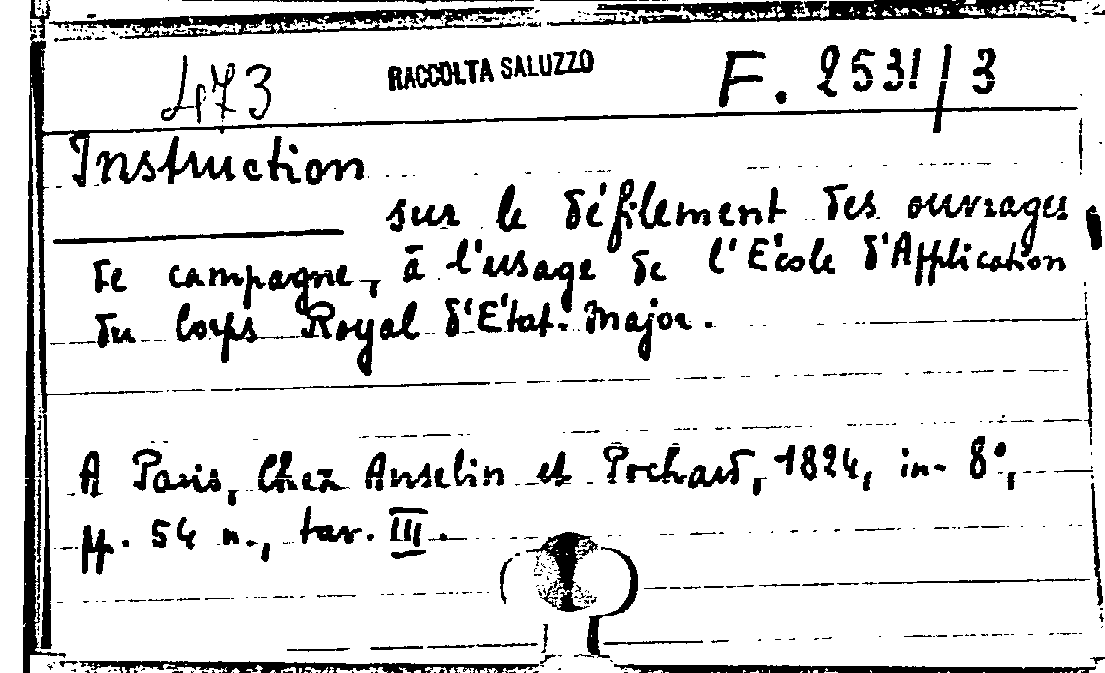 473 RACCOLTA SALUZZO F. 2531/3
Instruction
sur le défilement des ouvrages
de campagne, à l'usage de l'École d'Application
du Corps Royal d'État-Major.
A Paris, Chez Anselin et Pochard, 1824, in-8°,
pp. 54 n., tav. III.